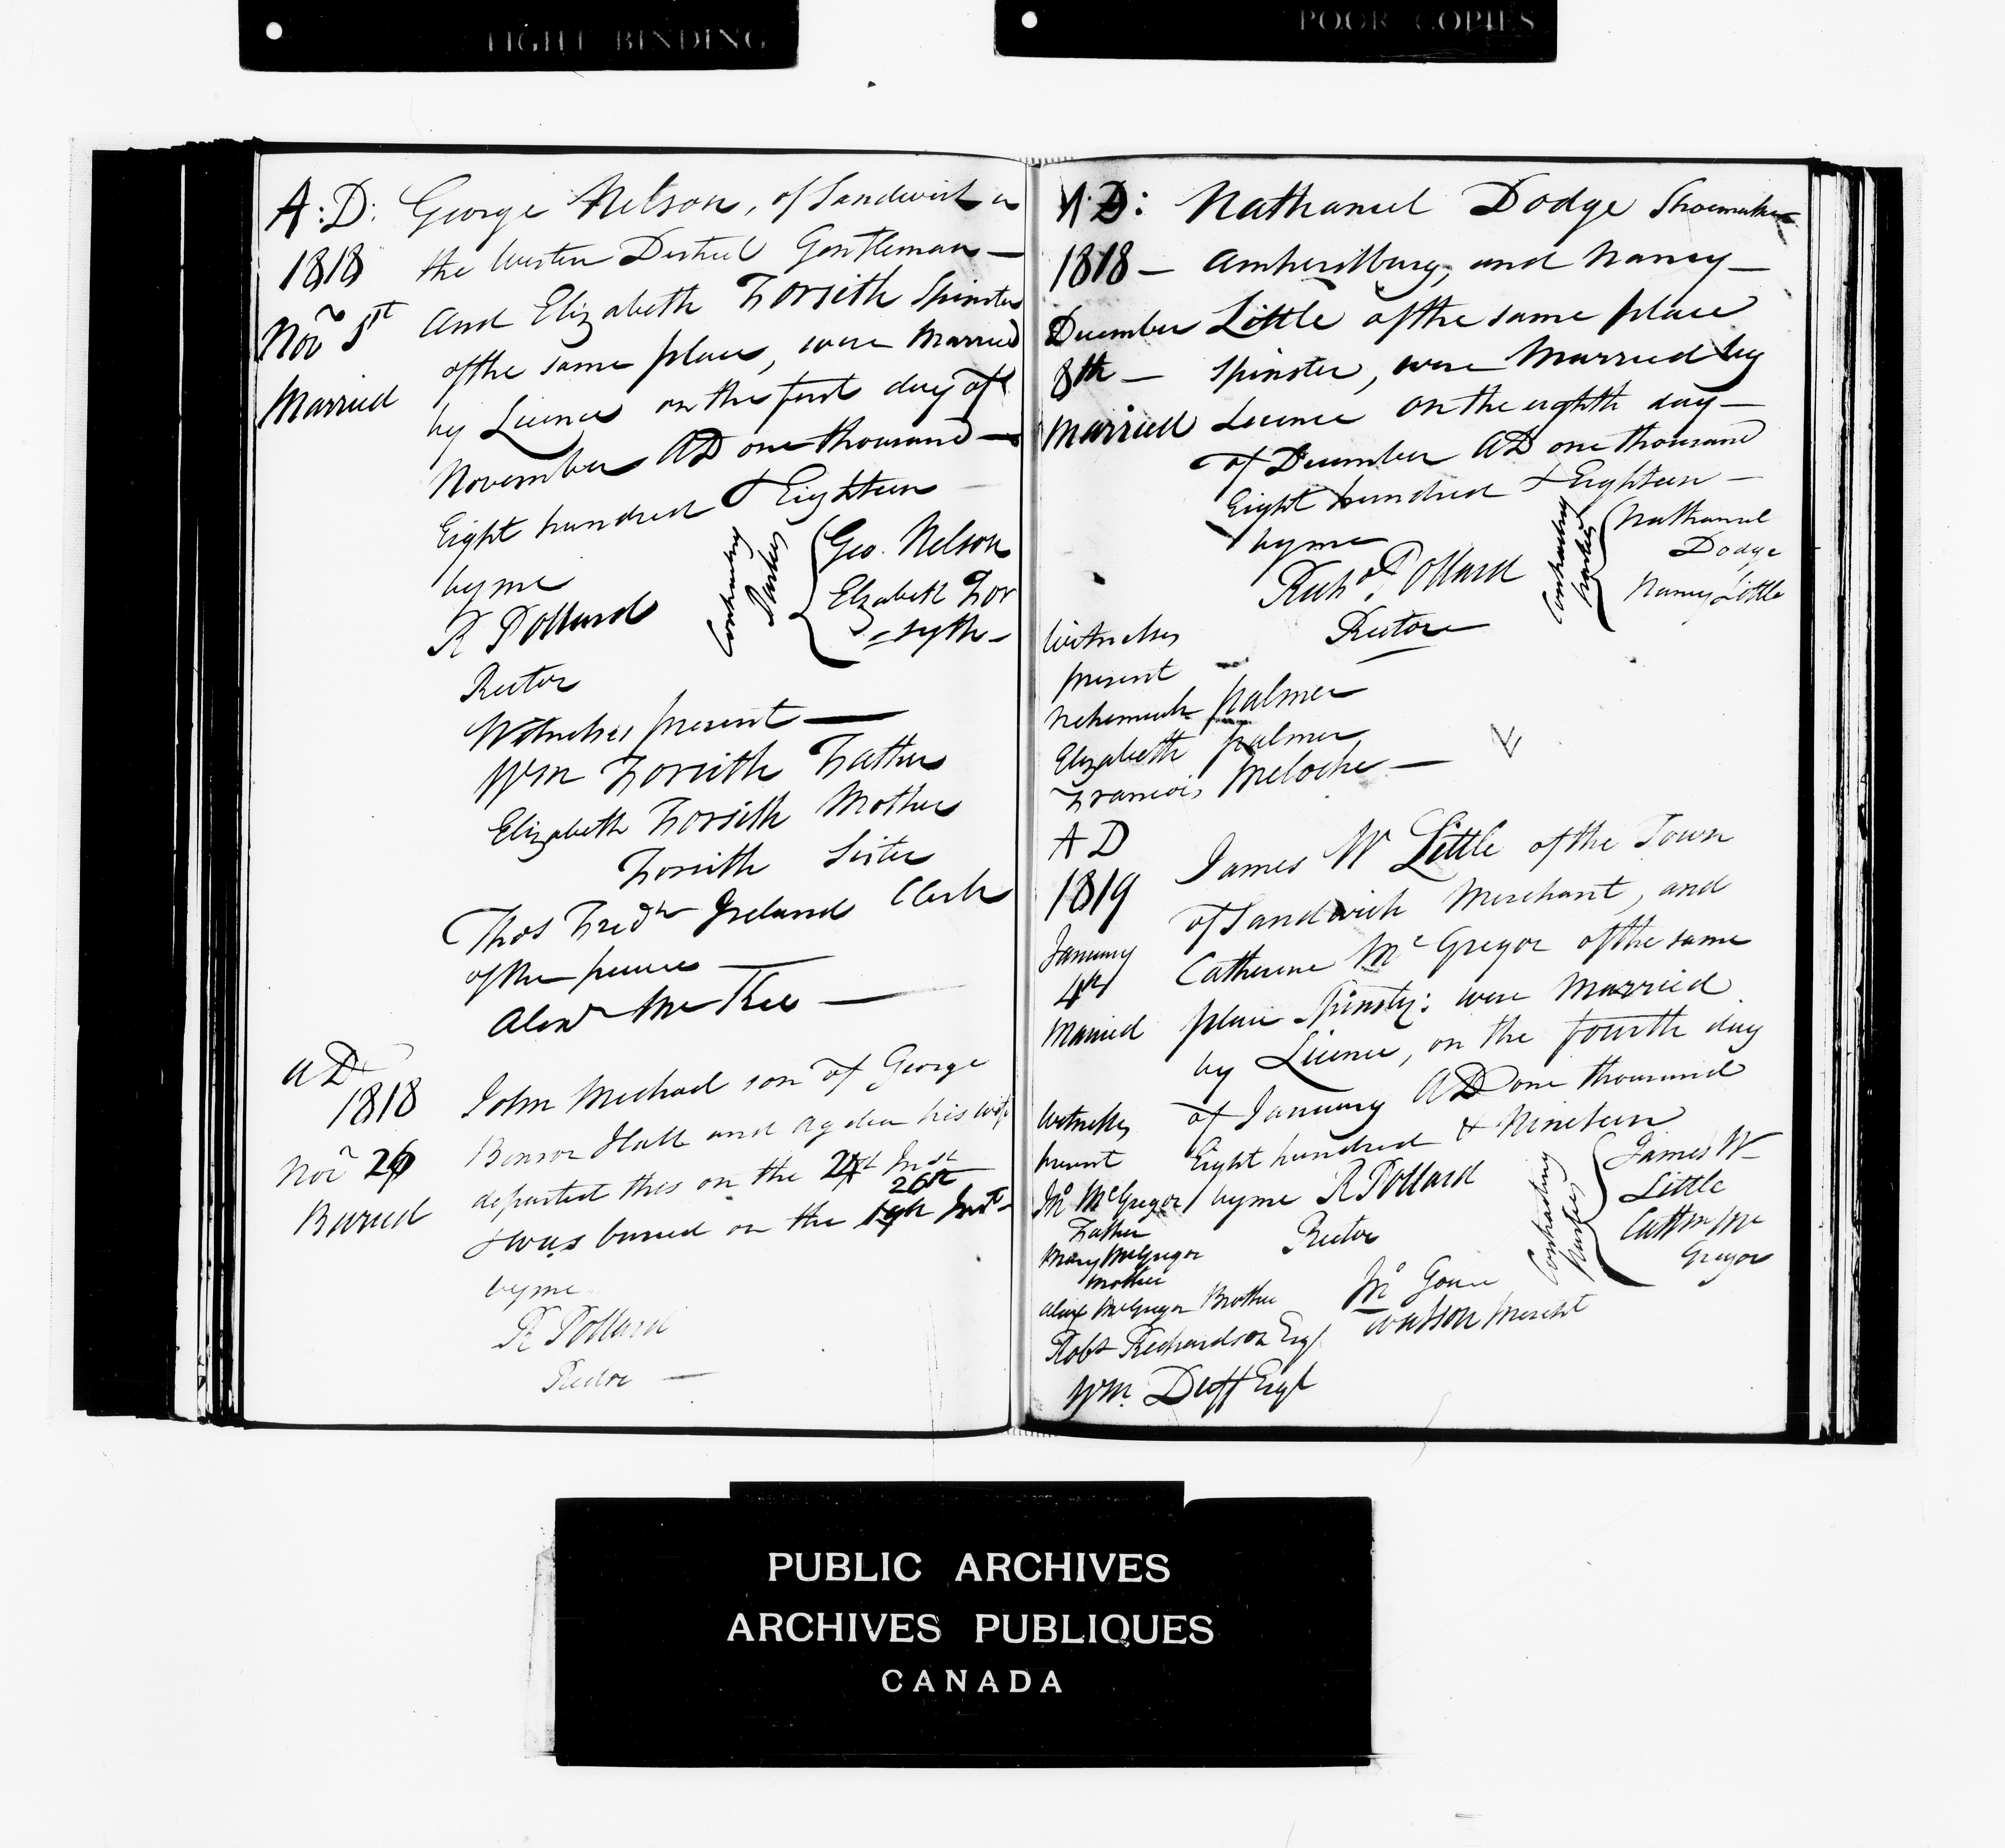 TIGHT BINDING
POOR COPIES
A:D: George Nelson, of Sandwich in
1818 the Western District Gentleman —
Nov 1st and Elizabeth Forsith Spinster
of the same place, were married
Married by Licence on the first day of
November AD one thousand —
Eight hundred & Eighteen —
by me
R Pollard
Rector
Contracting Parties
Geo. Nelson
Elizabeth For
=syth-
Witnesses present —
Wm Forsith Father
Elizabeth Forsith Mother
Forsith Sister
Thos Fredk Ireland Clerk
of the peace —
Alexr Mc Kee —
AD
1818 John Michael son of George
Benson Hall and his wife
Nov 26 departed this on the Inst
26th
Buried & was buried on the 19th Inst-
by me
R Pollard
Rector —
A.D: Nathaniel Dodge Shoemaker
1818 — Amherstburg, and Nancy —
December Little of the same place
8th — Spinster, were Married by
Married Licence on the eighth day —
of December AD one thousand
Eight hundred & Eighteen —
by me
Richd Pollard
Rector
Contracting parties
Nathaniel
Dodge
Nancy Little
Witnesses
present
Nehemiah palmer
Elizabeth palmer
Francois Meloche —
AD
1819 James W Little of the Town
of Sandwich Merchant, and
January Catherine McGregor of the same
4th
Married place Spinstr: were Married
by Licence, on the fourth day
of January AD one thousand
Eight hundred & Nineteen
by me R Pollard
Rector
Contracting parties
James W
Little
Cathn Mc
Gregor
Witnesses
present
Jno McGregor
Father
Mary McGregor
Mother
Alexr McGregor Brother
Robt Richardson Esqr
Wm. Duff Esqr
Jno
Watson present
PUBLIC ARCHIVES
ARCHIVES PUBLIQUES
CANADA